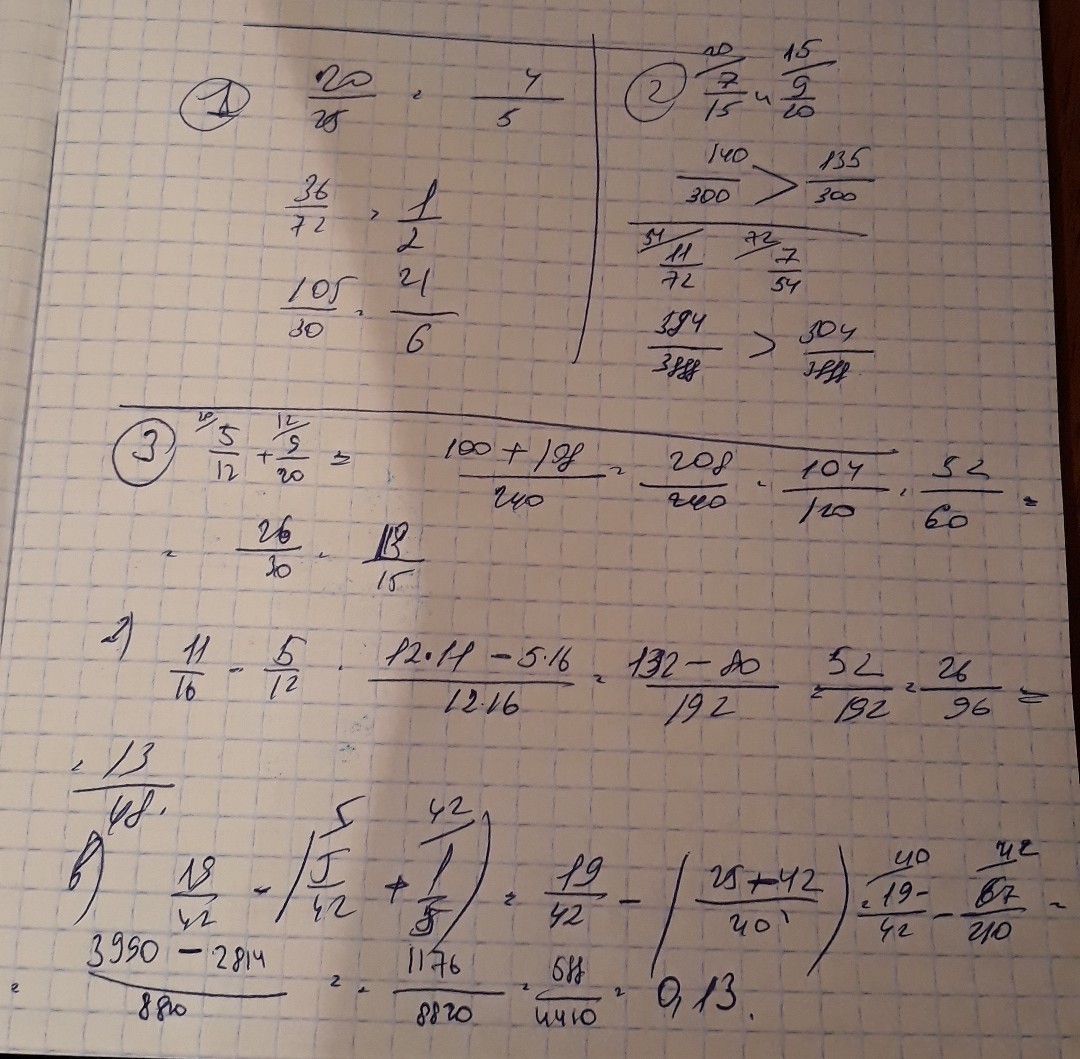 ① 20/25 = 4/5
36/72 = 1/2
105/30 = 21/6
② 20/ 7/15 и 15/ 9/20
140/300 > 135/300
54/ 11/72 72/ 7/54
>
③ 20/ 5/12 + 12/ 9/20 =
100 + 108/240 = 208/240 = 104/120 = 52/60 =
= 26/30 = 13/15
2) 11/16 - 5/12 = 12·11 - 5·16/12·16 = 132 - 80/192 = 52/192 = 26/96 =
= 13/48.
в) 19/42 - (5/ 5/42 + 42/ 1/5) = 19/42 - (25 + 42/) = 19/42 - 42/ 67/210 =
= 3990 - 2814/8820 = 1176/8820 = /4410 = 0,13.